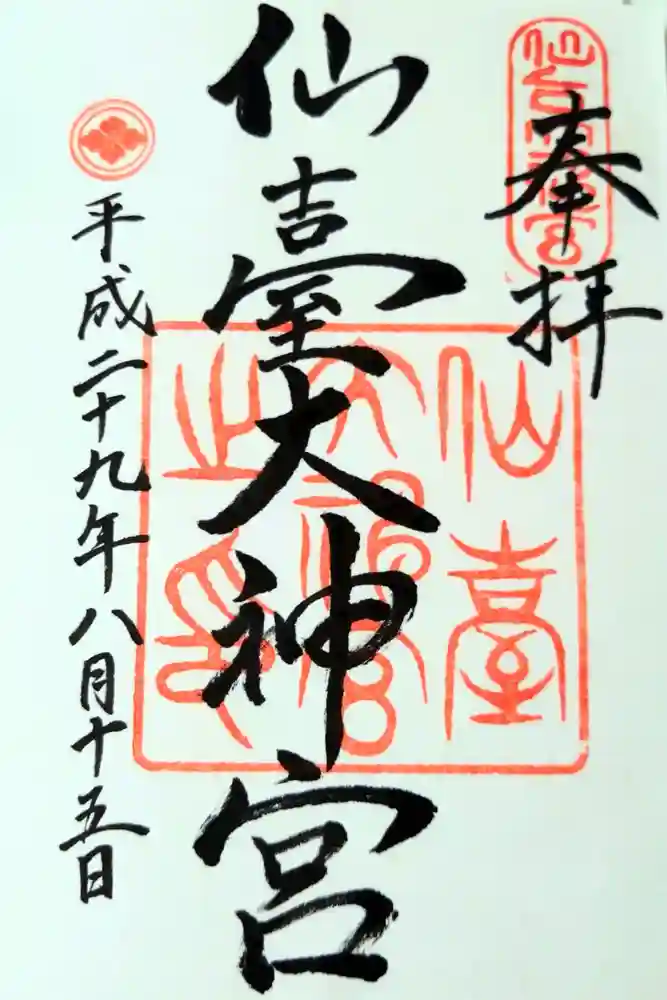 奉拝
仙臺大神宮
仙臺大神宮正印
平成二十九年八月十五日